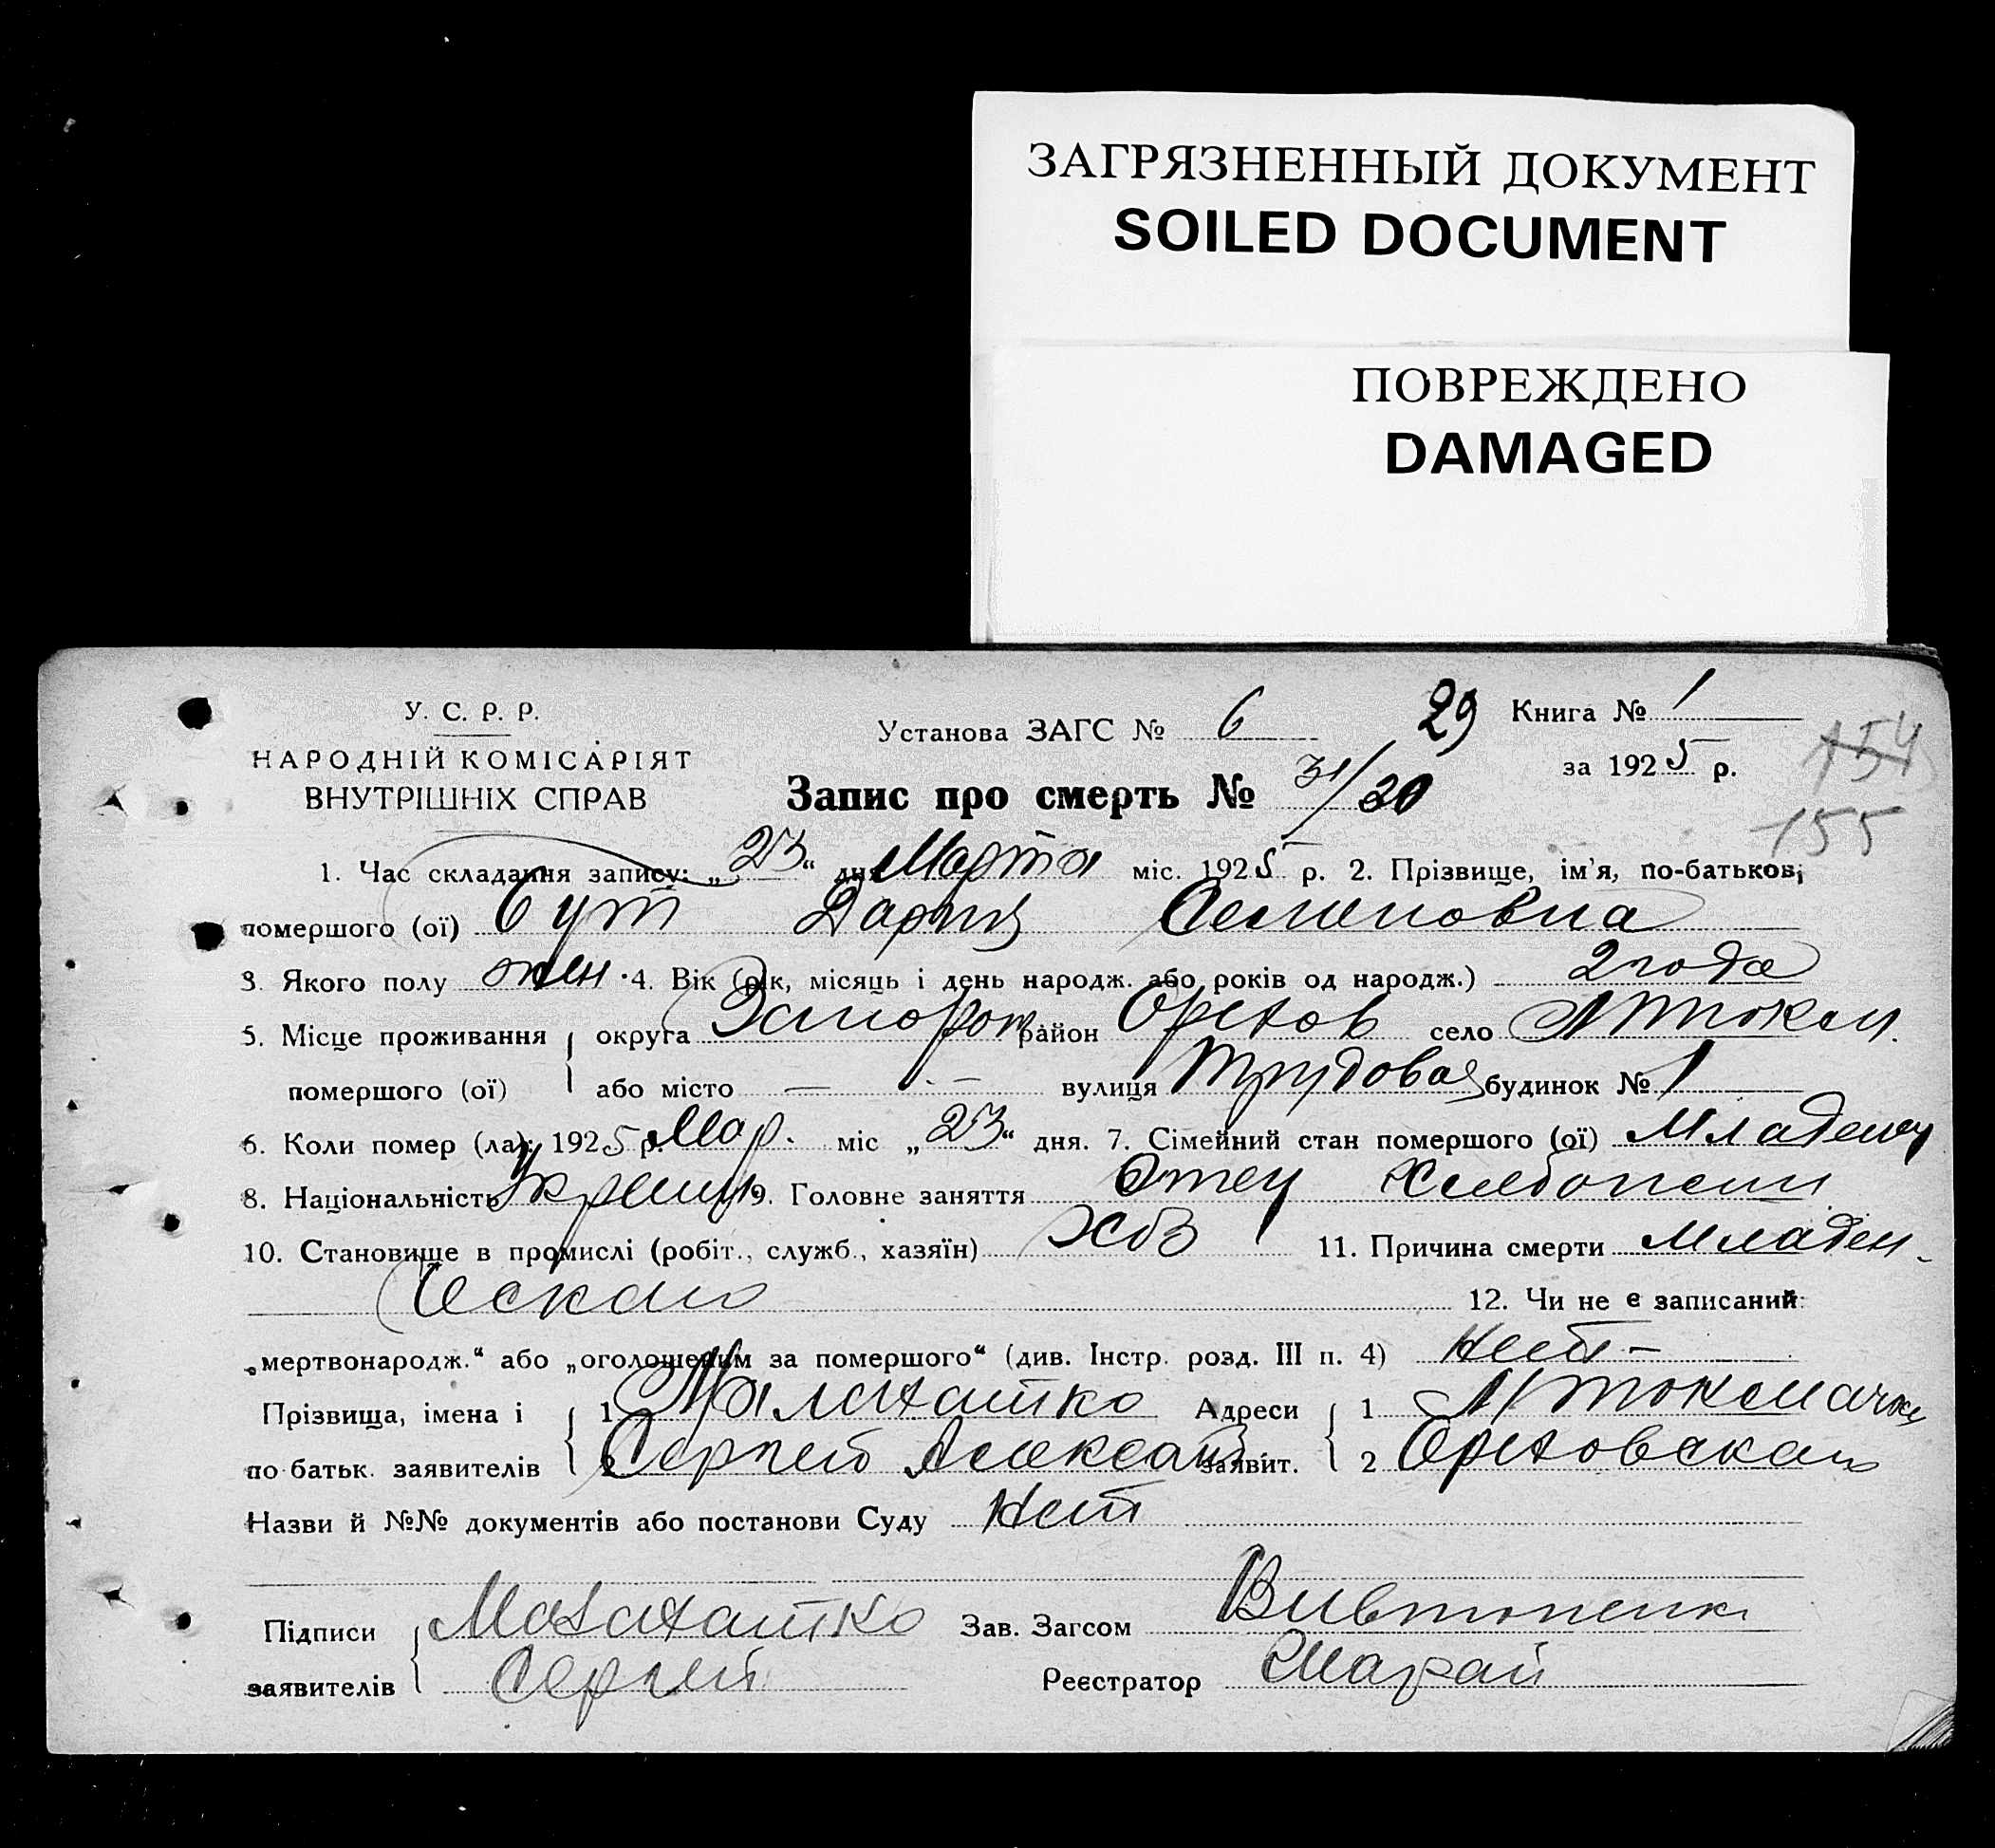 ЗАГРЯЗНЕННЫЙ ДОКУМЕНТ
SOILED DOCUMENT
ПОВРЕЖДЕНО
DAMAGED
У. С. Р. Р.
НАРОДНІЙ КОМІСАРІЯТ
ВНУТРІШНІХ СПРАВ
Установа ЗАГС № 6
29
Книга № 1
за 1925 р.
154
155
Запис про смерть № 31/30
1. Час складання запису: „23“ дня Марта міс. 1925 р. 2. Прізвище, ім'я, по-батькові
помершого (ої) Бут Дария Семеновна
3. Якого полу жен. 4. Вік (рік, місяць і день народж. або років од народж.) 2 года
5. Місце проживання помершого (ої) округа Запорож район Орехов село М Токм.
або місто — . — вулиця Трудовая будинок № 1
6. Коли помер (ла): 1925 р. Мар. міс „23“ дня. 7. Сімейний стан помершого (ої) Младенец
8. Національність Украин 9. Головне заняття Отец Хлебопаш
10. Становище в промислі (робіт., служб., хазяїн) Хоз 11. Причина смерти Младен-
ская 12. Чи не є записаний
„мертвонародж.“ або „оголошеним за помершого“ (див. Інстр. розд. III п. 4) Нет –
Прізвища, імена і по батьк. заявителів 1 Малахатко Адреси заявит. 1 М Токмачка
2 Сергей Александ 2 Ореховская
Назви й №№ документів або постанови Суду Нет
Підписи заявителів Малахатко Зав. Загсом
Сергей Реєстратор